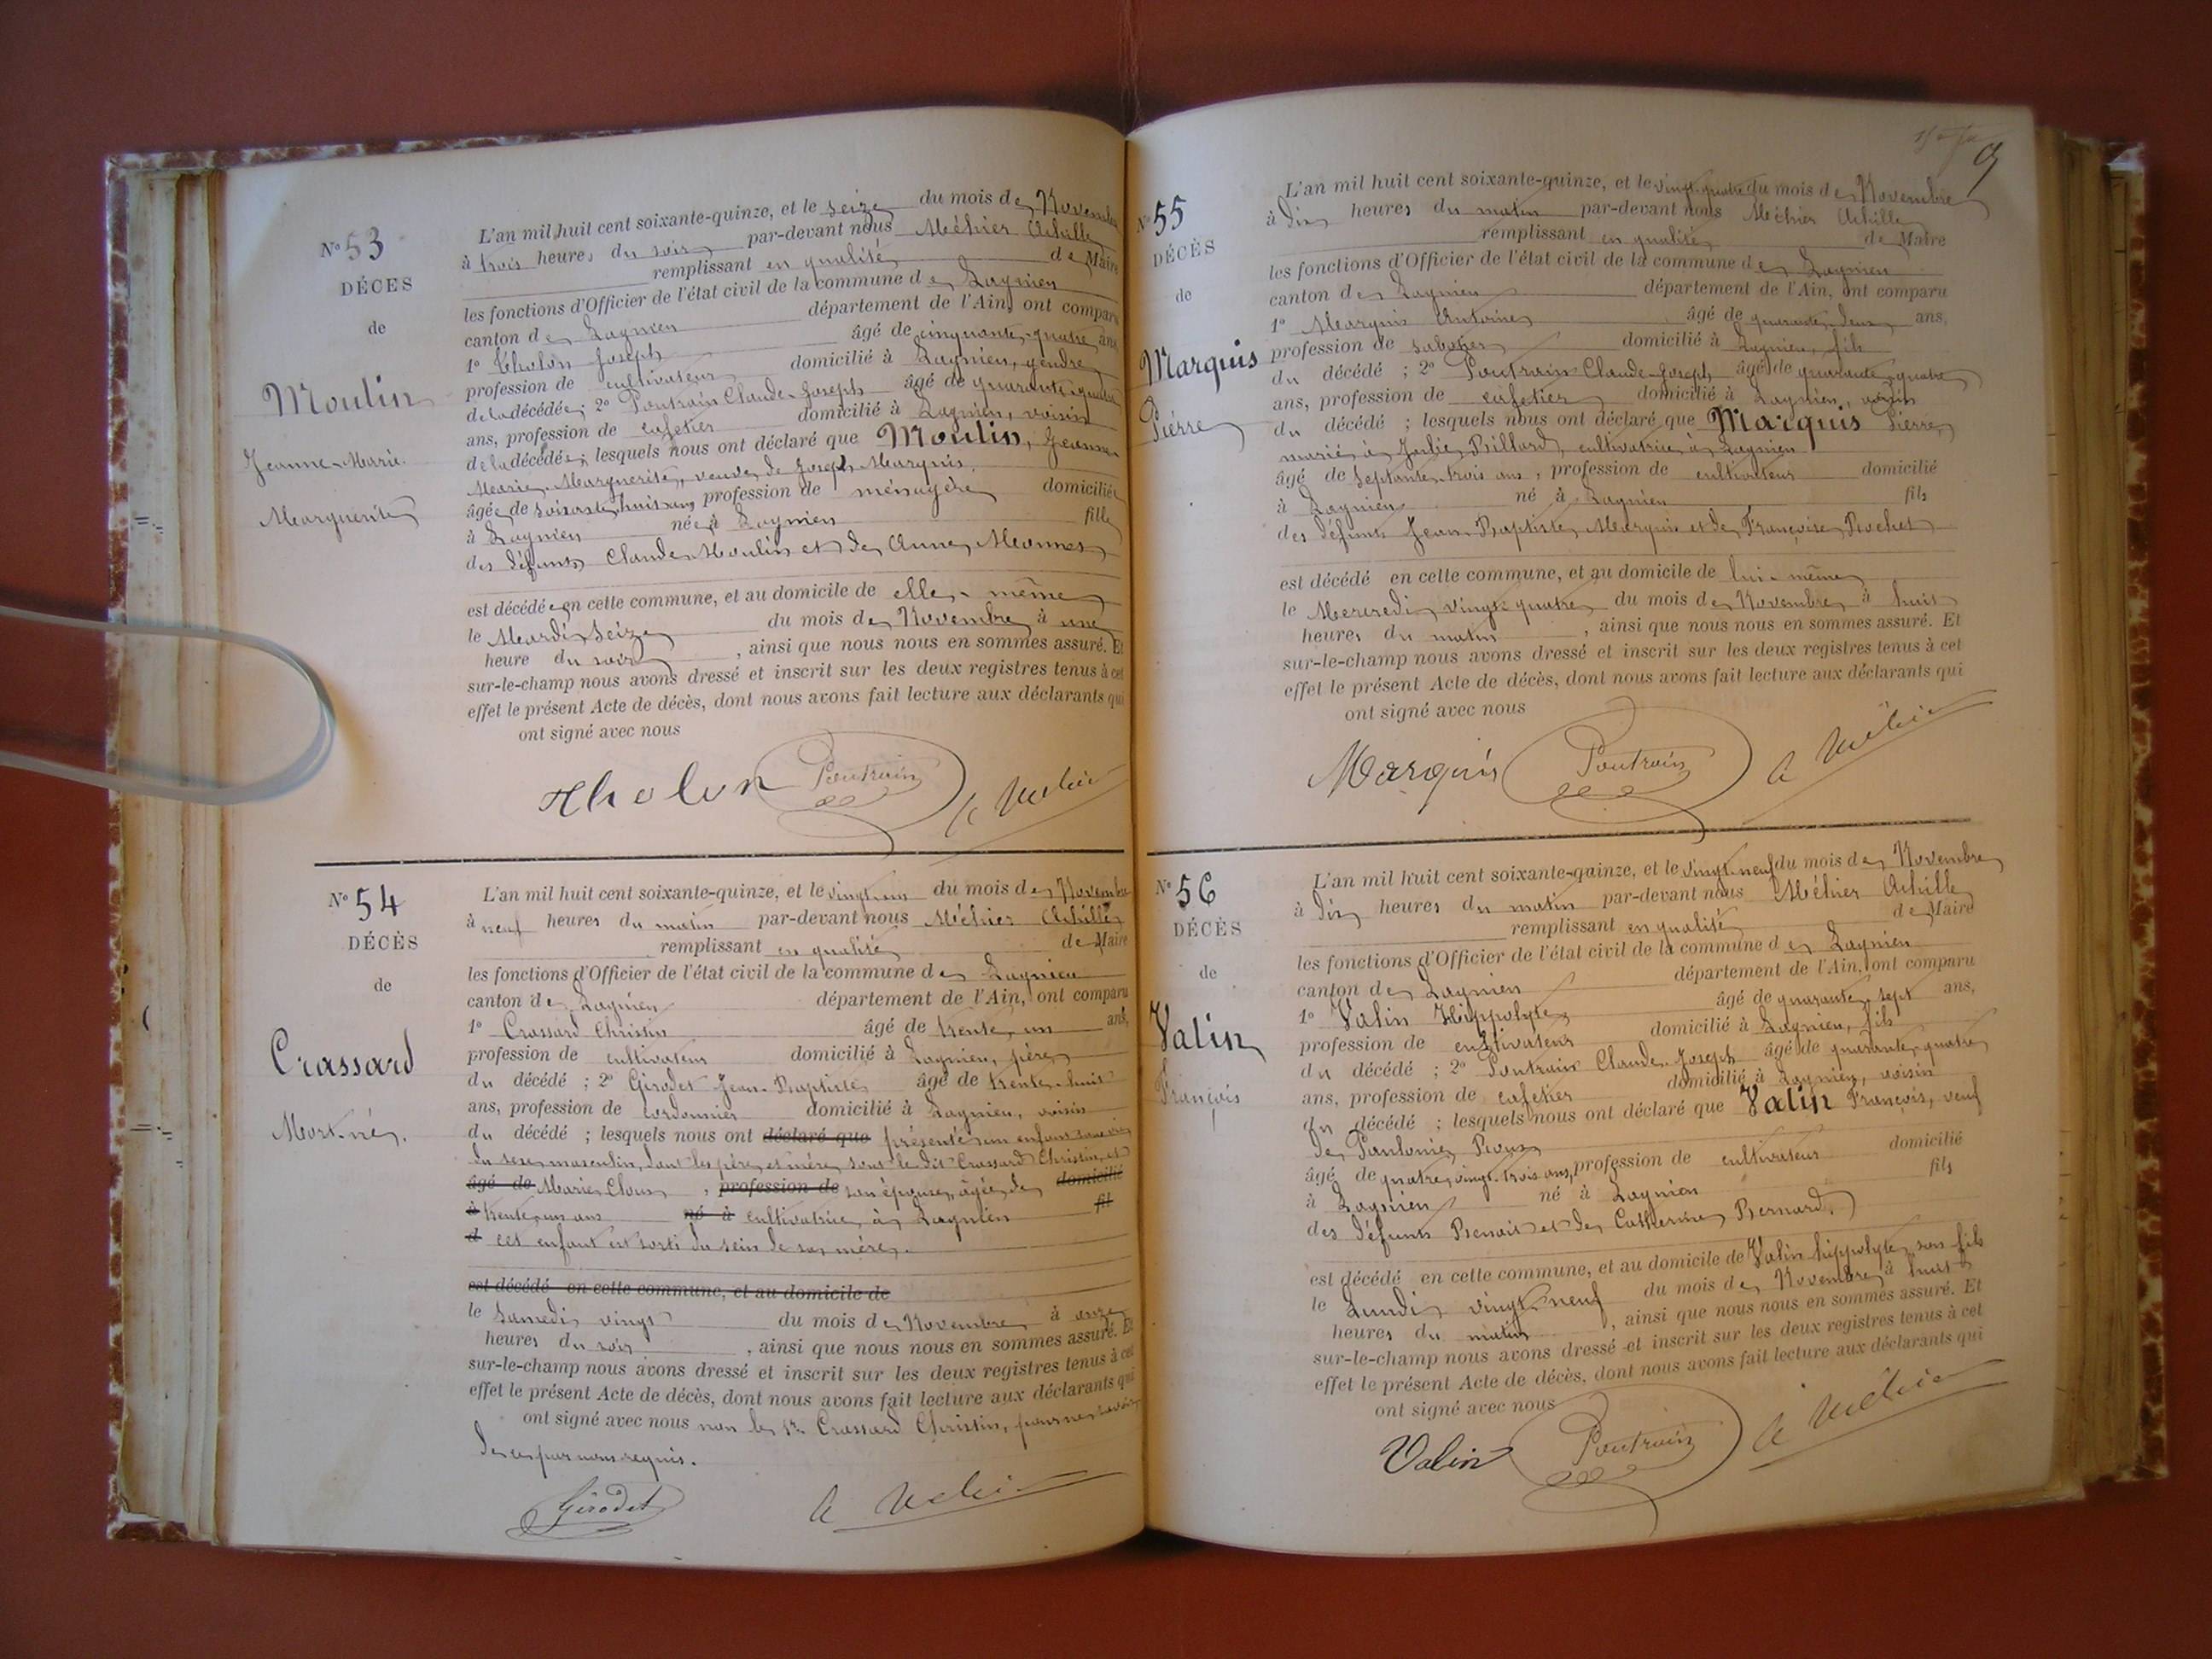 N° 53
DÉCES
de
Moulin
Jeanne-Marie
Marguerite
L'an mil huit cent soixante-quinze, et le seize du mois de Novembre
à trois heures du soir par-devant nous Méhier Achille
remplissant en qualité de Maire
les fonctions d'Officier de l'état civil de la commune de Lagnieu
canton de Lagnieu département de l'Ain, ont comparu
1° Tholon Joseph âgé de cinquante-quatre ans
profession de cultivateur domicilié à Lagnieu, gendre
de la décédée; 2° Poutrain Claude-Joseph âgé de quarante-quatre
ans, profession de cafetier domicilié à Lagnieu, voisin
de la décédée; lesquels nous ont déclaré que Moulin, Jeanne-
Marie-Marguerite, veuve de Joseph Marquis,
âgée de soixante-huit ans, profession de ménagère domiciliée
à Lagnieu née à Lagnieu fille
des défunts Claude Moulin et de Anne
est décédée en cette commune, et au domicile de elle-même
le Mardi seize du mois de Novembre à une
heure du soir, ainsi que nous nous en sommes assuré. Et
sur-le-champ nous avons dressé et inscrit sur les deux registres tenus à cet
effet le présent Acte de décès, dont nous avons fait lecture aux déclarants qui
ont signé avec nous
Tholon Poutrain A Méhier
N° 54
DÉCÈS
de
Crassard
Mort-né.
L'an mil huit cent soixante-quinze, et le vingt-un du mois de Novembre
à neuf heures du matin par-devant nous Méhier Achille
remplissant en qualité de Maire
les fonctions d'Officier de l'état civil de la commune de Lagnieu
canton de Lagnieu département de l'Ain, ont comparu
1° Crassard Christin âgé de trente-un ans,
profession de cultivateur domicilié à Lagnieu, père
du décédé ; 2° Girodet Jean-Baptiste âgé de trente-huit
ans, profession de cordonnier domicilié à Lagnieu, voisin
du décédé ; lesquels nous ont déclaré que présenté un enfant sans vie
du sexe masculin, dont les père et mère sont le dit Crassard Christin, et
âgé de Marie , profession de son épouse, âgée de domicilié
à trente-un ans né à cultivatrice à Lagnieu fil
d cet enfant est sorti du sein de sa mère.
est décédé en cette commune, et au domicile de
le Samedi vingt du mois de Novembre à onze
heures du soir, ainsi que nous nous en sommes assuré. Et
sur-le-champ nous avons dressé et inscrit sur les deux registres tenus à cet
effet le présent Acte de décès, dont nous avons fait lecture aux déclarants qui
ont signé avec nous non le sr Crassard Christin, pour ne savoir
de ce par nous requis.
Girodet A Méhier
N° 55
DÉCÈS
de
Marquis
Pierre
L'an mil huit cent soixante-quinze, et le vingt-quatre du mois de Novembre
à dix heures du matin par-devant nous Méhier Achille
remplissant en qualité de Maire
les fonctions d'Officier de l'état civil de la commune de Lagnieu
canton de Lagnieu département de l'Ain, ont comparu
1° Marquis Antoine âgé de quarante-deux ans,
profession de sabotier domicilié à Lagnieu, fils
du décédé ; 2° Poutrain Claude-Joseph âgé de quarante-quatre
ans, profession de cafetier domicilié à Lagnieu, voisin
du décédé ; lesquels nous ont déclaré que Marquis Pierre,
marié à Julie Billard, cultivatrice à Lagnieu
âgé de septante-trois ans, profession de cultivateur domicilié
à Lagnieu né à Lagnieu fils
des défunts Jean-Baptiste Marquis et de Françoise Rochet
est décédé en cette commune, et au domicile de lui-même
le Mercredi vingt-quatre du mois de Novembre à huit
heures du matin, ainsi que nous nous en sommes assuré. Et
sur-le-champ nous avons dressé et inscrit sur les deux registres tenus à cet
effet le présent Acte de décès, dont nous avons fait lecture aux déclarants qui
ont signé avec nous
Marquis Poutrain A Méhier
N° 56
DÉCÈS
de
Valin
François
L'an mil huit cent soixante-quinze, et le vingt-neuf du mois de Novembre
à dix heures du matin par-devant nous Méhier Achille
remplissant en qualité de Maire
les fonctions d'Officier de l'état civil de la commune de Lagnieu
canton de Lagnieu département de l'Ain, ont comparu
1° Valin Hippolyte âgé de quarante-sept ans,
profession de cultivateur domicilié à Lagnieu, fils
du décédé ; 2° Poutrain Claude-Joseph âgé de quarante-quatre
ans, profession de cafetier domicilié à Lagnieu, voisin
du décédé ; lesquels nous ont déclaré que Valin François, veuf
de Pantonie Roux
âgé de quatre-vingt-trois ans, profession de cultivateur domicilié
à Lagnieu né à Lagnieu fils
des défunts Benoit et de Catherine Bernard.
est décédé en cette commune, et au domicile de Valin hippolyte, son fils
le Lundi vingt-neuf du mois de Novembre à huit
heures du matin, ainsi que nous nous en sommes assuré. Et
sur-le-champ nous avons dressé et inscrit sur les deux registres tenus à cet
effet le présent Acte de décès, dont nous avons fait lecture aux déclarants qui
ont signé avec nous
Valin Poutrain A Méhier